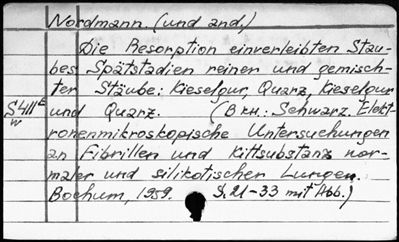 Nordmann. (und and.)
Die Resorption einverleibten Stau-
bes. Spätstadien reiner und gemisch-
ter Stäube: Kieselgur, Quarz, Kieselgur
S 411 E
w
und Quarz. (В кн.: Schwarz. Elekt-
ronenmikroskopische Untersuchungen
an Fibrillen und Kittsubstanz nor-
maler und silikotischer Lungen.
Bochum, 1959. S. 21-33 mit Abb.)